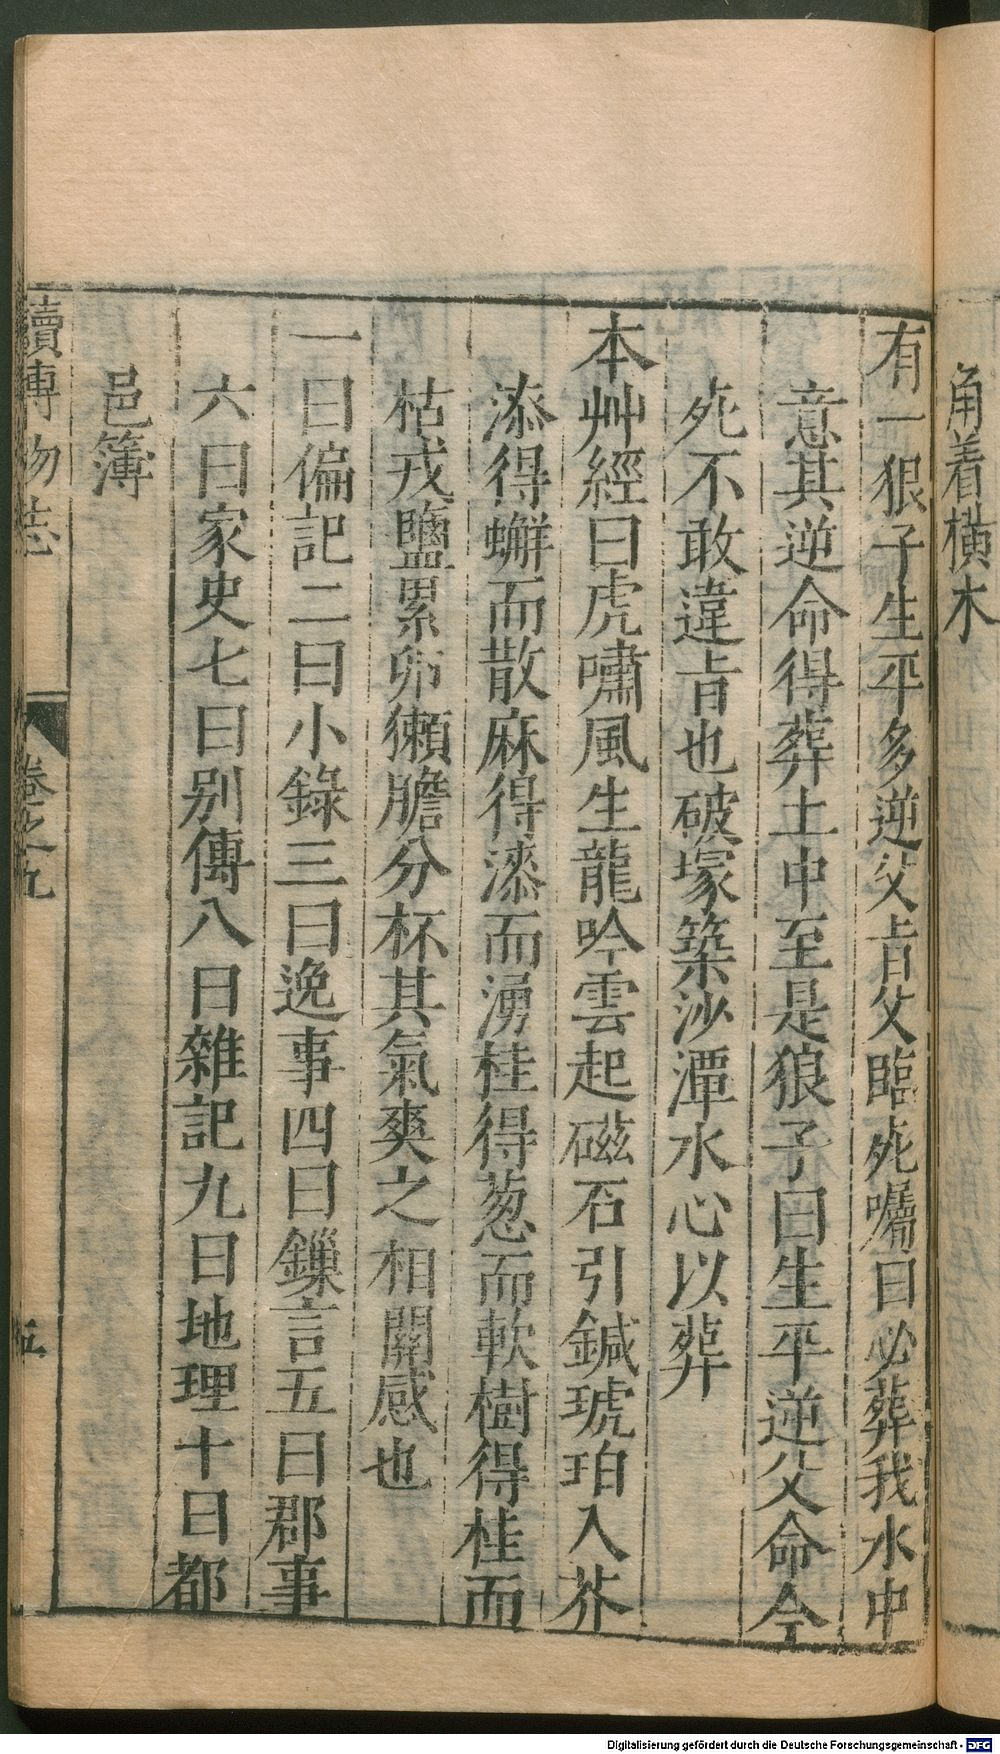 角着橫木
有一狠子生平多逆父旨父臨死囑曰必葬我水中
意其逆命得葬土中至是狼子曰生平逆父命今
死不敢違旨也破塚築沙潭水心以葬
本艸經曰虎嘯風生龍吟雲起磁石引鍼琥珀入芥
漆得蠏而散麻得漆而湧桂得葱而軟樹得桂而
枯戎鹽累卵獺膽分杯其氣爽之相關感也
一曰偏記二曰小錄三曰逸事四曰鏁言五曰郡事
六曰家史七曰别傳八曰雜記九曰地理十曰都
邑簿
續博物志 卷之九 五
Digitalisierung gefördert durch die Deutsche Forschungsgemeinschaft - DFG